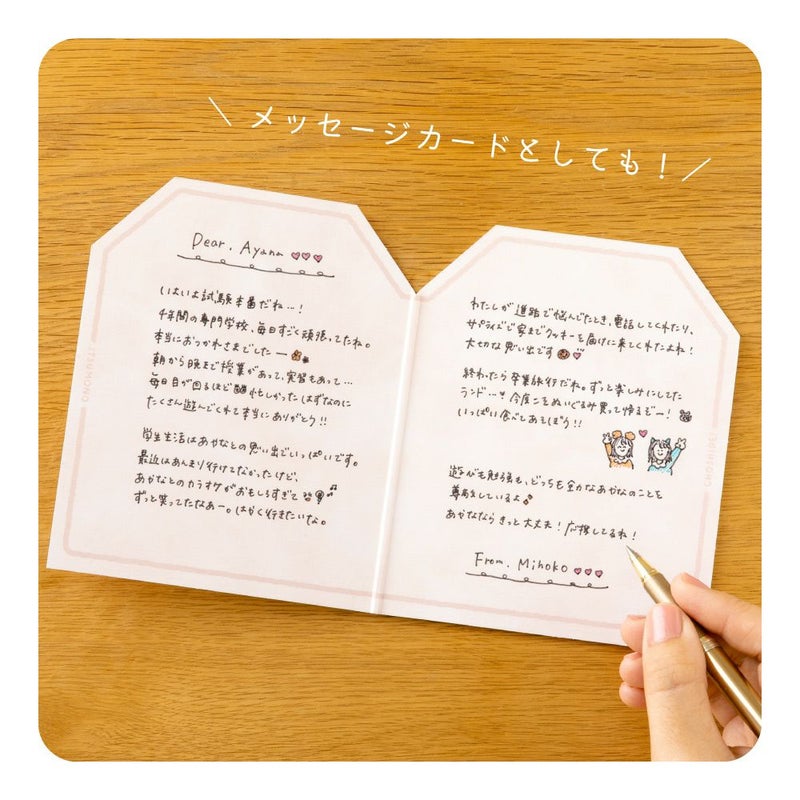 メッセージカードとしても！
Dear. Ayana
いよいよ試験本番だね…!
4年間の専門学校、毎日すごく頑張ってたね。
本当におつかれさまでしたー
朝から晩まで授業があって、実習もあって…
毎日目が回るほど忙しかったはずなのに
たくさん遊んでくれて本当にありがとう!!
学生生活はあやなとの思い出でいっぱいです。
最近はあんまり行けてなかったけど、
あやなとのカラオケがおもしろすぎて
ずっと笑ってたなあー。はやく行きたいな。
わたしが進路で悩んでたとき、電話してくれたり、
サプライズで家までクッキーを届けに来てくれたよね!
大切な思い出です
終わったら卒業旅行だね。ずっと楽しみにしてた
ランド…! 今度こそぬいぐるみ買って帰るぞー!
いっぱい食べてあそぼう!!
遊びも勉強も、どっちも全力なあやなのことを
尊敬しているよ
あやなならきっと大丈夫! 応援してるね!
From. Mihoko